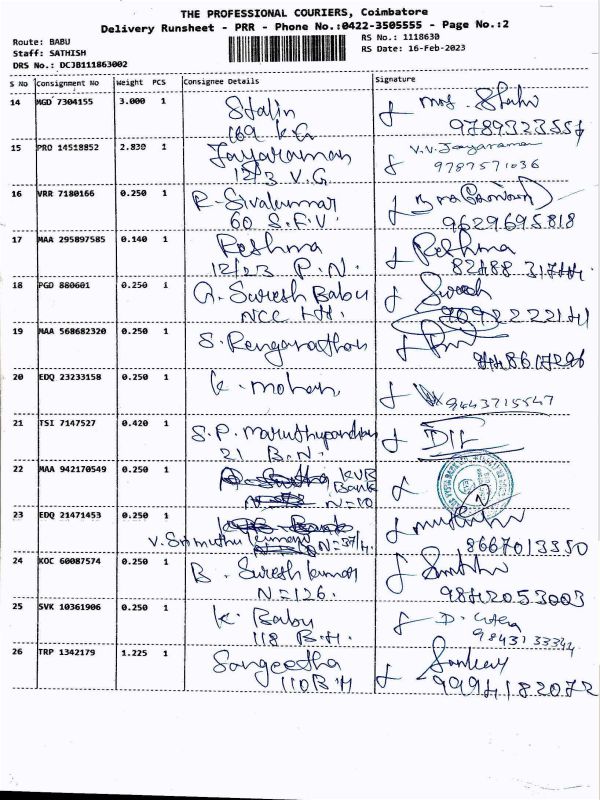 THE PROFESSIONAL COURIERS, Coimbatore
Delivery Runsheet - PRR - Phone No.:0422-3505555 - Page No.:2
Route: BABU
Staff: SATHISH
DRS No.: DCJB111863002
RS No.: 1118630
RS Date: 16-Feb-2023
S No Consignment No Weight PCS Consignee Details Signature
14 MGD 7304155 3.000 1 Stalin
169 K.G
9789323557
15 PRO 14518852 2.830 1 Jayaraman V.V. Jayaraman
12/3 V.G 9787571036
16 VRR 7180166 0.250 1 R. Sivakumar
60 S.F.V. 9629695818
17 MAA 295897585 0.140 1 Reshma Reshma
12/23 P.N.
18 PGD 880601 0.250 1 G. Suresh Babu Suresh
NCC
19 MAA 568682320 0.250 1 S. Rengarathan
20 EDQ 23233158 0.250 1 K. mohan
9443715547
21 TSI 7147527 0.420 1 S.P. Maruthupandian
21 B.N.
22 MAA 942170549 0.250 1 KVB
Bank
N=10
23 EDQ 21471453 0.250 1
V. Srimuthukumar N=37/H
8667013350
24 KOC 60087574 0.250 1 B. Suresh kumar
N=126. 9842053003
25 SVK 10361906 0.250 1 K. Babu
118 B.H. 9843133344
26 TRP 1342179 1.225 1 Sangeetha
110 B.H 9994182072